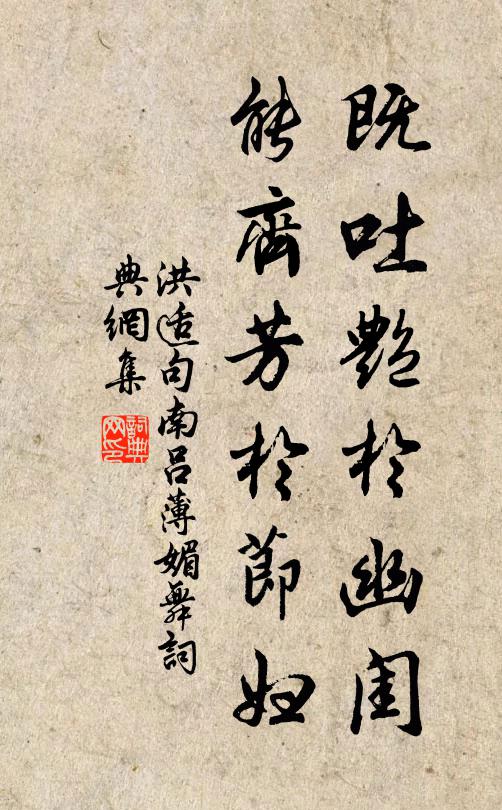 既吐艷於幽閨
能齊芳於節婦
洪适句南呂薄媚舞詞
典網集
詞典網印